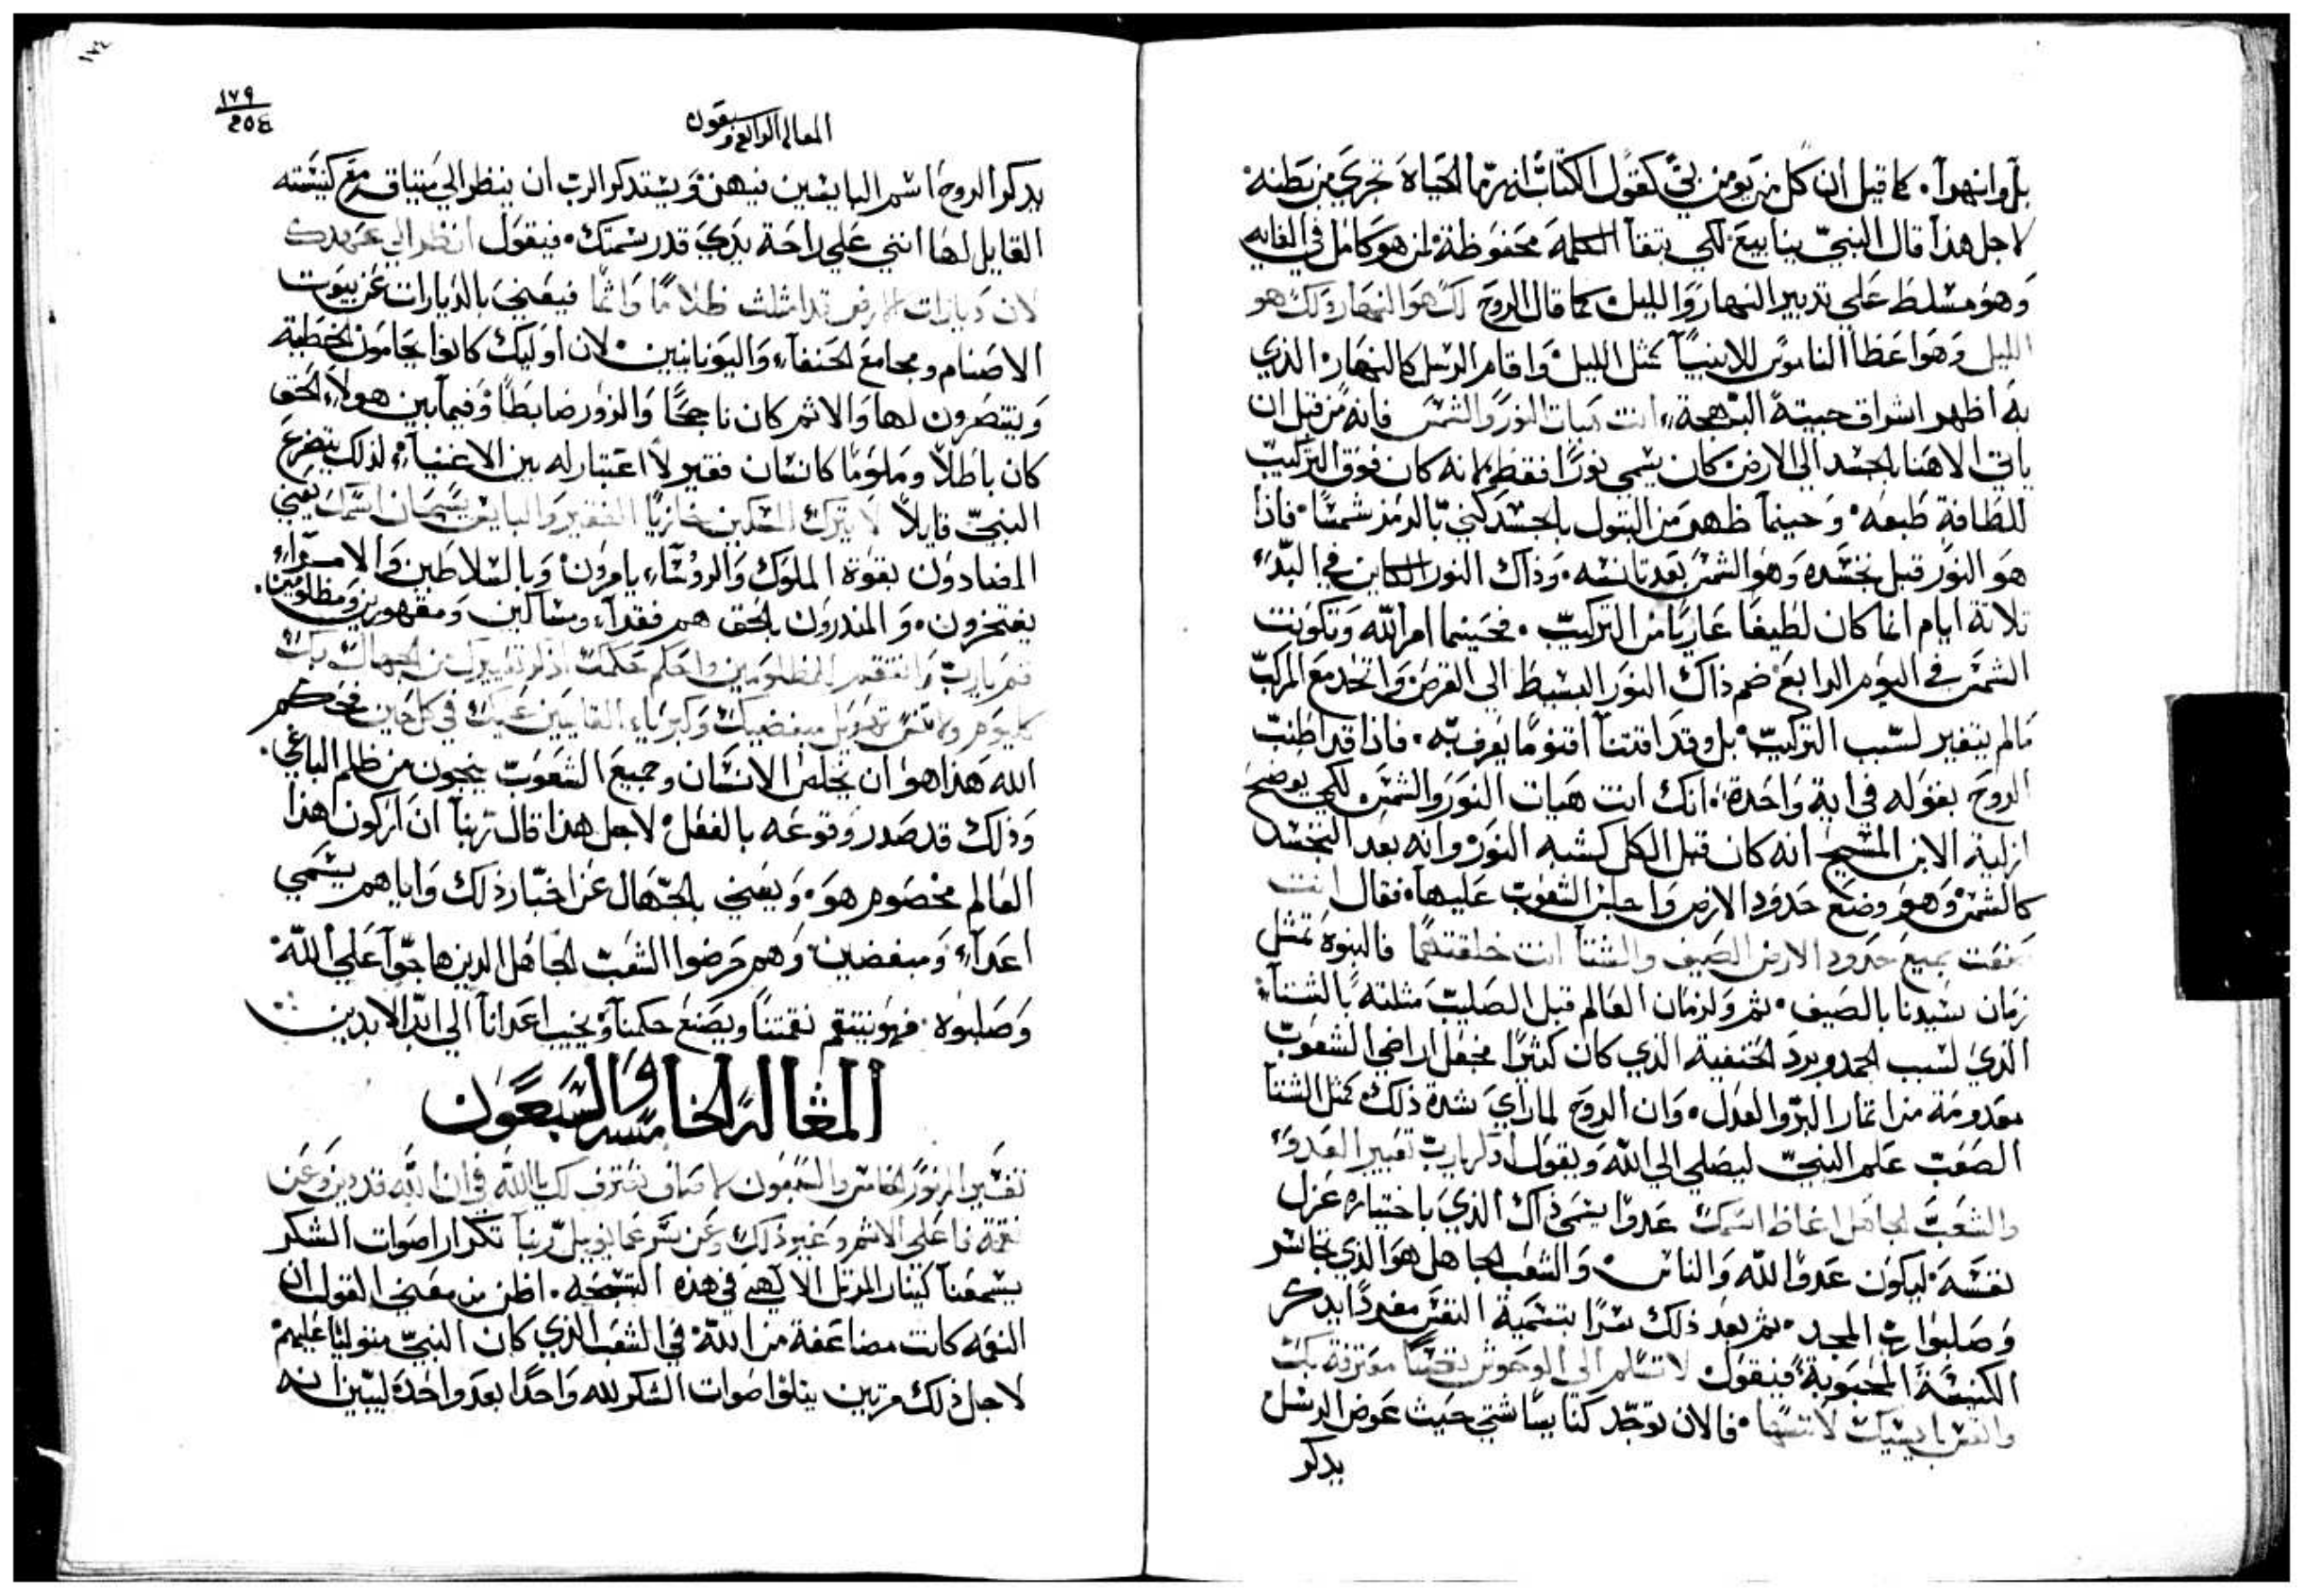 بل وانهرا. كما قيل ان كل من يومن بي كقول الكتاب انهر ما الحياة تجري من بطنه
لاجل هذا قال النبي ينابيع لكي يتقا الكلمة محفوظة لمن هو كامل في الغايه
وهو مسلط علي تدبير النهار والليل كما قال الروح لك هو النهار ولك هو
الليل وهو اعطا الناموس للانبيآ كمثل الليل واقام الرسل كالنهار الذي
به اظهر اشراق البهجة انت هيات النور والشمس فانه من قبل ان
ياتي الاهنا بالجسد الي الارض كان يسمي نورًا فقط لانه كان فوق التركيب
للطافة طبعه وحينما ظهر من البتول بالجسد كني بالرمز شمسًا فاذا
هو النور قبل تجسده وهو الشمس بعد تانسه وذاك النور الكاين في البدء
تلاتة ايام انما كان لطيفًا عاريًا من التركيب فحينما امر الله وتكونت
الشمس في اليوم الرابع ضم ذاك النور البسيط الي القرص واتحد مع المركب
مالم يتغير لسبب التركيب بل وقد اقتنآ اقنومًا يعرف به فاذا قد اطنب
الروح بقوله في اية واحدة انك انت هيات النور والشمس لكي يوضح
ازلية الابن المسيح انه كان قبل الكل كشبه النور وانه بعد التجسد
كالشمس وهو وضع حدود الارض واجلس الشعوب عليها فقال انت
صنعت جميع حدود الارض الصيف والشتآ انت خلقتهما فالنبوة تمثل
زمان سيدنا بالصيف ثم ولزمان العالم قبل الصليب مثلته بالشتآء
الذي لسبب الجمد وبرد الحنفية الذي كان كثيرًا مجعل اراضي الشعوب
معدومة من اتمار البر والعدل وان الروح لما راي شدة ذلك كمثل الشتآ
الصعب علم النبي ليصلي الي الله ويقول اذكر يارب تعيير العدو
والشعب الجاهل اغاظ اسمك عدوا يسمي ذاك الذي باختياره عزل
نفسه ليكون عدوا لله والناس والشعب الجاهل هو الذي تجاسر
وصلبوا رب المجد ثم بعد ذلك سرًا بتسمية النفس مفردًا يدكر
الكنيسة المحبوبة فيقول لا تسلم الي الوحوش نفسًا معترفة بك
وانفس بايسيك لا تنسها فالان توجد كنايسًا شتي حيث عوض الرسل
يدكر
١٧٩
المقاله الرابعه وسبعون
يدكر الروح اسم البايسين فيهن ويستدكر الرب ان ينظر الي ميتاق مع كنيسته
القايل لها انني علي راحة يدي قدرسمتك فيقول انظر الي عهدك
لان ديارات الارض قد امتلت ظلامًا واثمًا فيعني بالديارات عن بيوت
الاصنام ومجامع الحنفآء واليونانيين لان اوليك كانوا يحامون الخطية
وينتصرون لها والاثم كان ناجحًا والزور ضابطًا وفيما بين هولاء الحق
كان باطلاً وملومًا كانسان فقير لا اعتبار له بين الاغنياء لذلك يتضرع
النبي قايلاً لا يترك المسكين خازيًا الفقير والبايس يسبحان اسمك يعني
المضادون بقوة الملوك والروساء يامرون وبالسلاطين والامراء
يفتخرون والمنذرون بالحق هم فقرآء ومساكين ومقهورين ومظلومين
قم يارب وانتقم للمظلومين واحكم حكمك اذكر تعييرك من الجهال بك
كل يوم ولا تنس تهويل مبغضيك وكبرياء القايمين عليك في كل حين فحكم
الله هذا هو ان يخلص الانسان وجميع الشعوب ينجون من ظلم الباغي
وذلك قد صدر وقوعه بالفعل لاجل هذا قال ربنا ان اركون هذا
العالم مخصوم هو ويعني بالجهال عن احبار ذلك واياهم يسمي
اعدآء ومبغضين وهم حرضوا الشعب الجاهل الدين هاجوا علي الله
وصلبوه فهو ينتقم نقمتنا ويصنع حكمنآ ويخيب اعدانآ الي ابد الابدين
المقالة الخامسه والسبعون
تفسير المزمور الخامس والسبعون لاصاف نعترف لك يا الله في ان الله قد دين وعن
نقمة ما علي الاثم وغير ذلك وعن شرعمانويل ربنا تكرار اصوات الشكر
يسمعنا كينار المرتل الالهي في هذه التسبحه اظن من معني القول ان
النعمه كانت مضاعفة من الله في الشعب الذي كان النبي متوليًا عليهم
لاجل ذلك مرتين يتلوا صوات الشكر لله واحدًا بعد واحدة ليبين انه